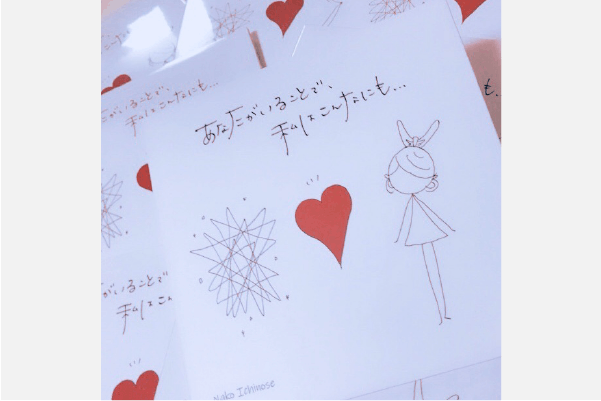 あなたがいることで、
私はこんなにも...
も..
がいることで、
私はこんなにも...
がいることで
私はこん
Mako Ichinose